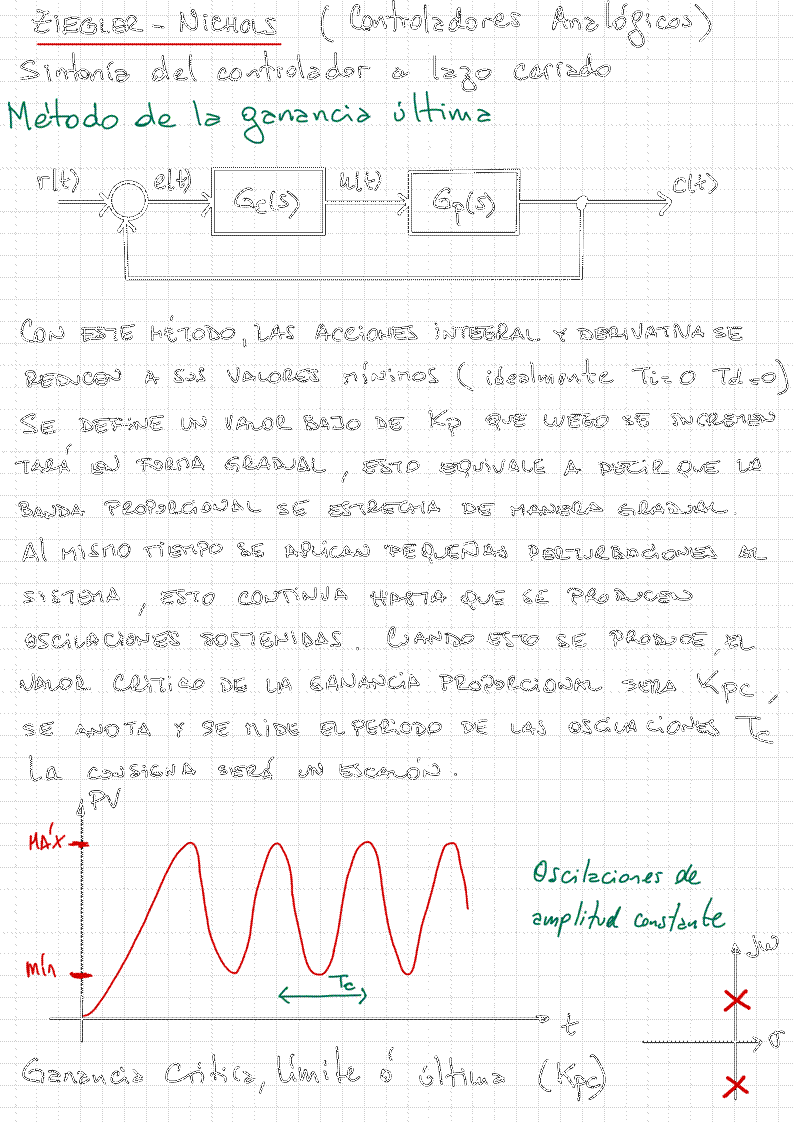 ZIEGLER - NICHOLS (Controladores Analógicos)
Sintonía del controlador a lazo cerrado
Método de la ganancia última
r(t) e(t) Gc(s) u(t) Gp(s) c(t)
CON ESTE MÉTODO, LAS ACCIONES INTEGRAL Y DERIVATIVA SE
REDUCEN A SUS VALORES MÍNIMOS (idealmente Ti=0 Td=0)
SE DEFINE UN VALOR BAJO DE Kp QUE LUEGO SE INCREMEN
TARÁ EN FORMA GRADUAL, ESTO EQUIVALE A DECIR QUE LA
BANDA PROPORCIONAL SE ESTRECHA DE MANERA GRADUAL.
Al MISMO TIEMPO SE APLICAN PEQUEÑAS PERTURBACIONES AL
SISTEMA, ESTO CONTINUA HASTA QUE SE PRODUCEN
OSCILACIONES SOSTENIDAS. CUANDO ESTO SE PRODUCE, EL
VALOR CRÍTICO DE LA GANANCIA PROPORCIONAL SERA Kpc,
SE ANOTA Y SE MIDE EL PERIODO DE LAS OSCILACIONES Tc
La CONSIGNA SERÁ UN ESCALÓN.
PV
MÁX
mín
Tc
t
Oscilaciones de
amplitud constante
jω
σ
Ganancia Crítica, límite ó última (Kpc)